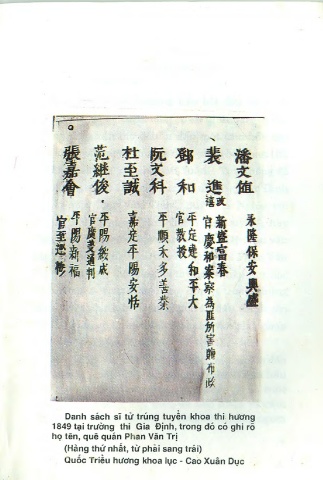 潘文值 永隆保安興盛
裴進 改 新盛富春
官慶和案察為匪所害贈布政
鄧和 平定建和平大
官教授
阮文科 平順禾多善
杜至誠 嘉定平陽安恬
范継俊 平陽綏成
官 通判
張嘉會 平陽新福
官至巡撫
Danh sách sĩ tử trúng tuyển khoa thi hương
1849 tại trường thi Gia Định, trong đó có ghi rõ
họ tên, quê quán Phan Văn Trị
(Hàng thứ nhất, từ phải sang trái)
Quốc Triều hương khoa lục - Cao Xuân Dục